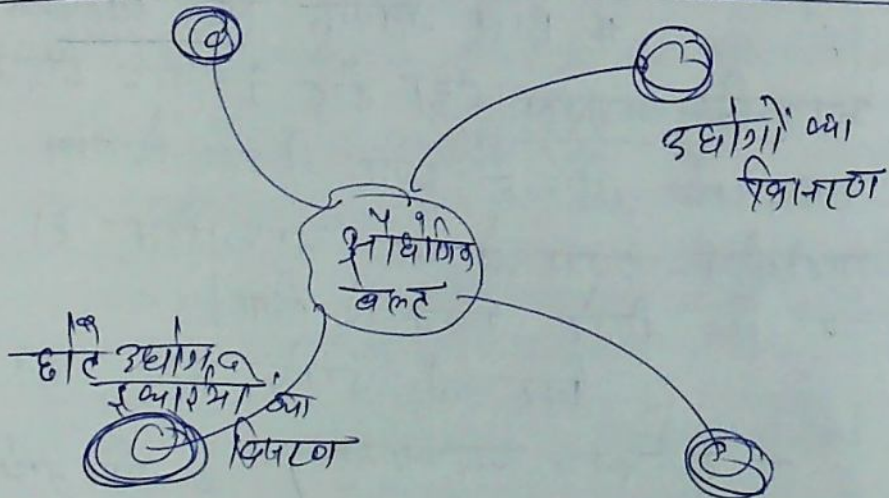 उद्योगों का
विकिरण
औद्योगिक
बेल्ट
छोटे उद्योग व
इकाईयों का
विकिरण